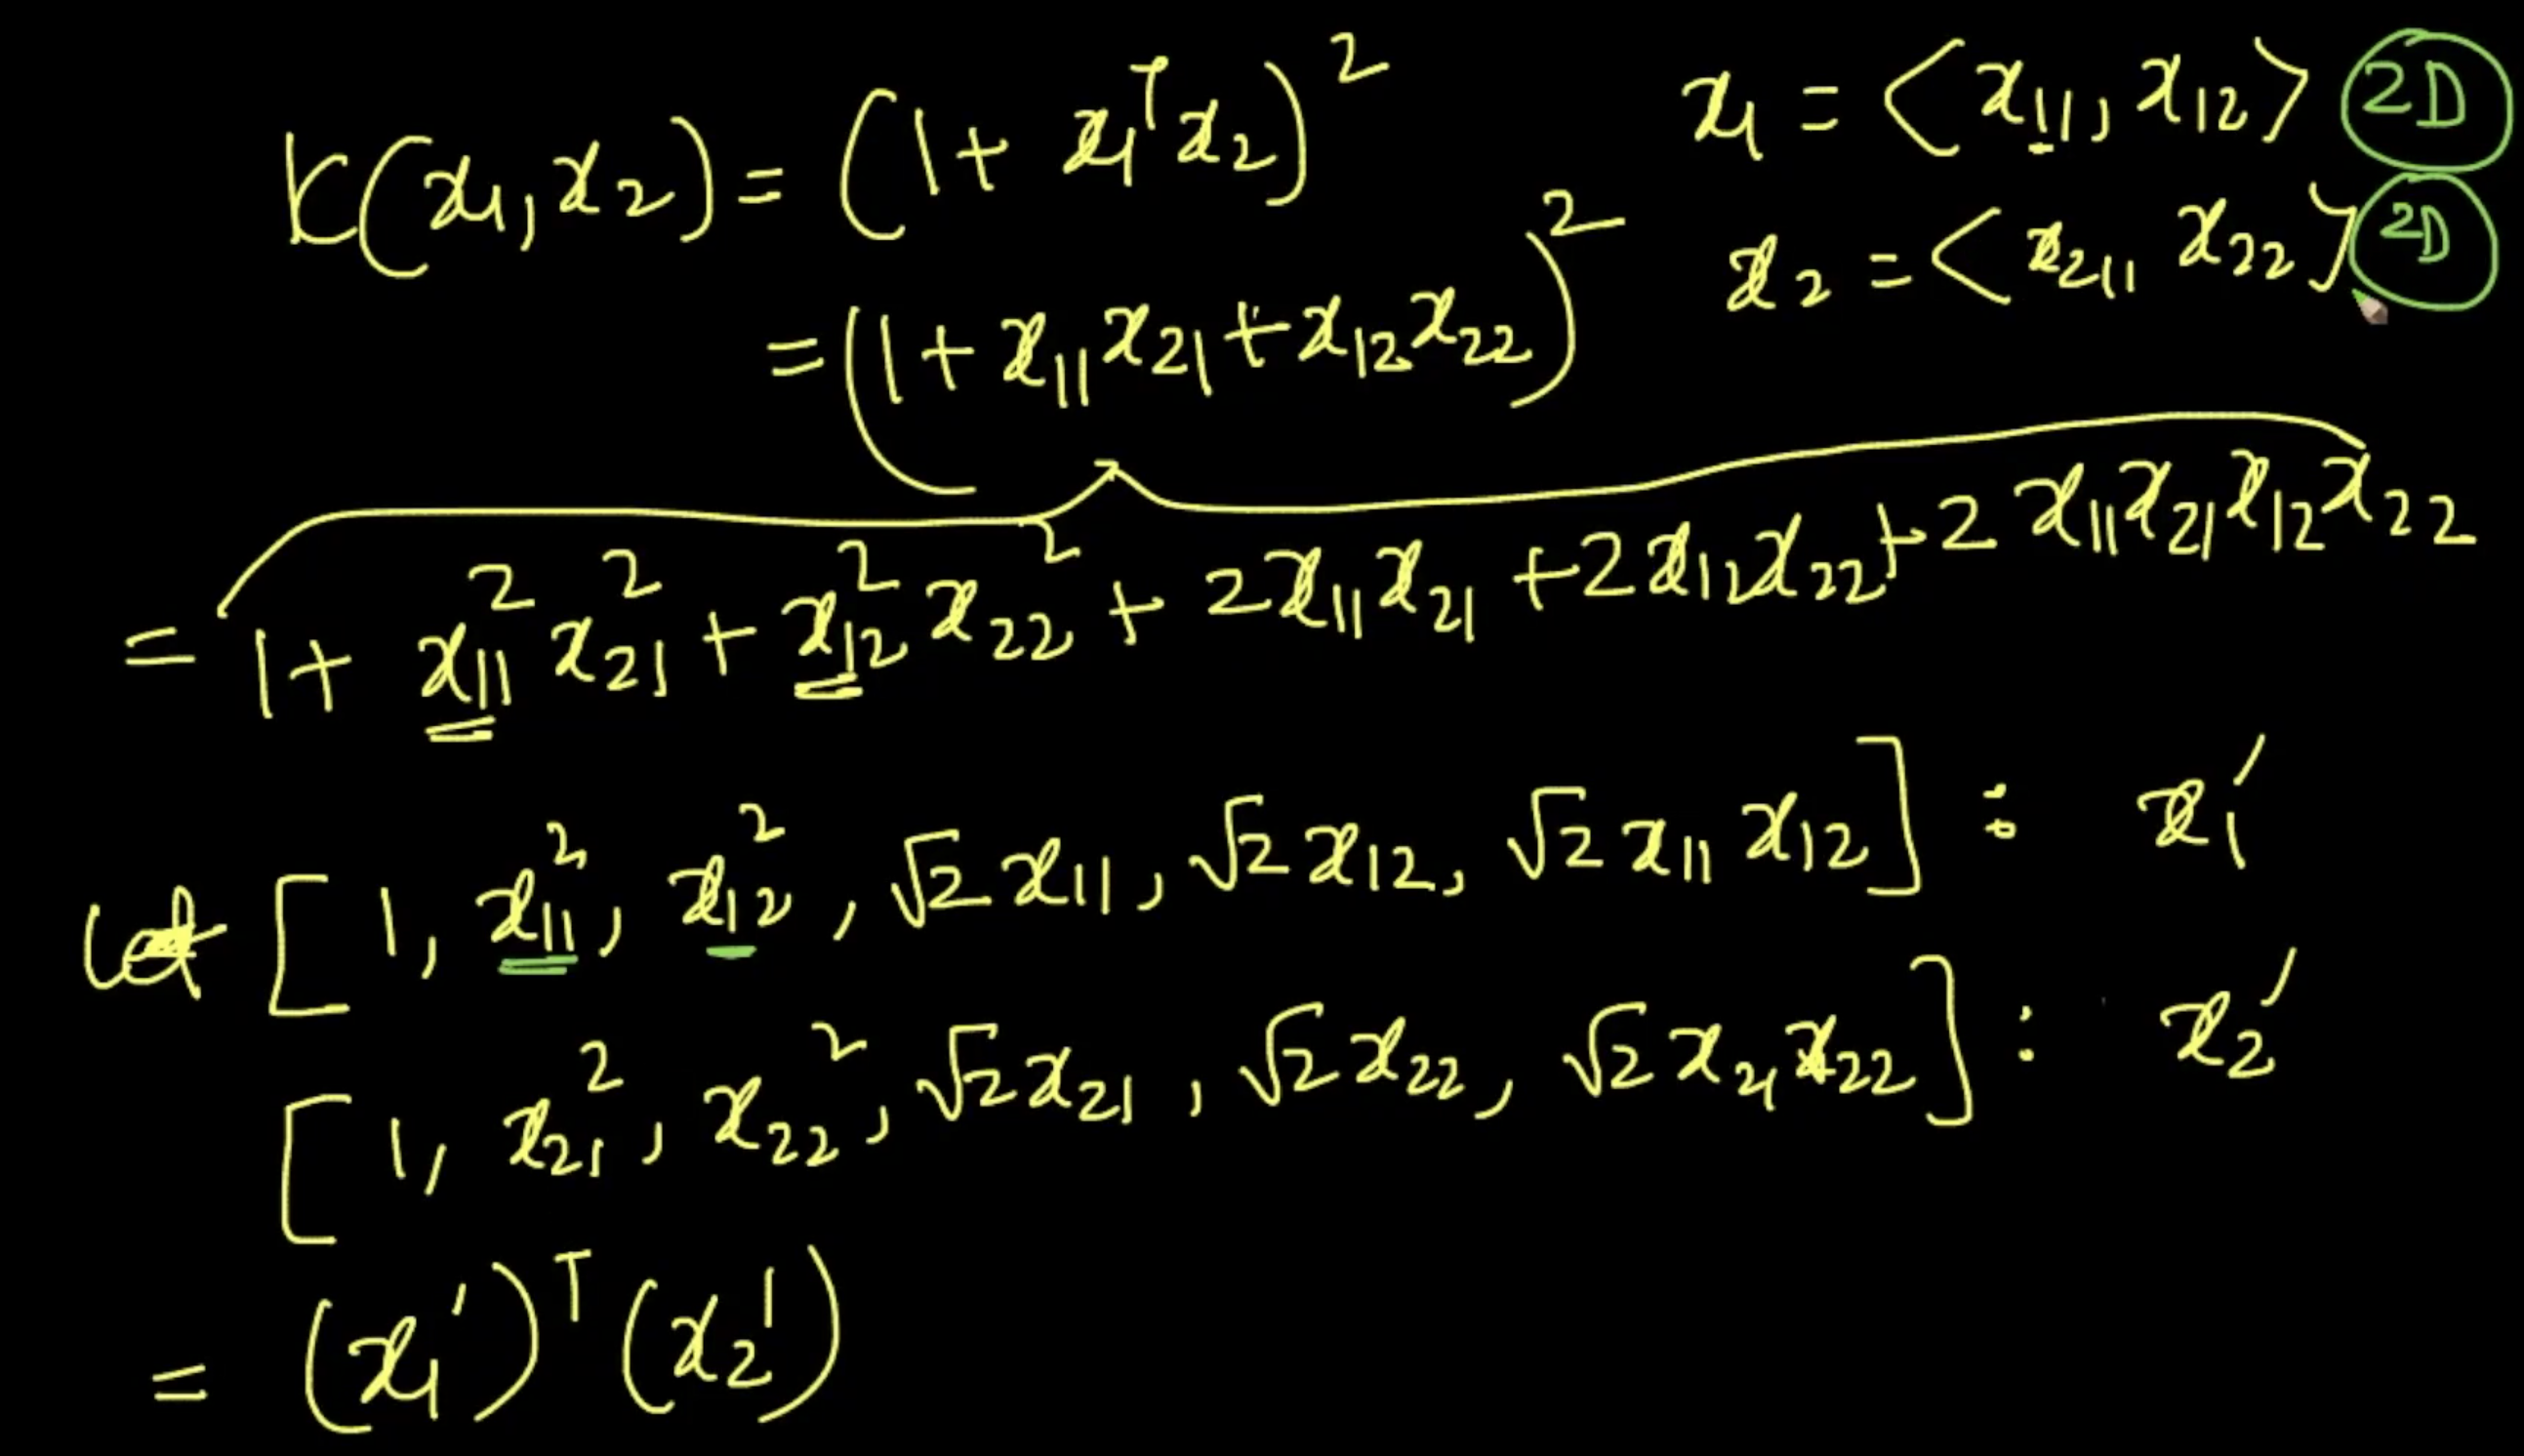 K(x₁, x₂) = (1 + x₁ᵀx₂)²
x₁ = <x₁₁, x₁₂> 2D
x₂ = <x₂₁, x₂₂> 2D
= (1 + x₁₁x₂₁ + x₁₂x₂₂)²
= 1 + x₁₁²x₂₁² + x₁₂²x₂₂² + 2x₁₁x₂₁ + 2x₁₂x₂₂ + 2x₁₁x₂₁x₁₂x₂₂
let [1, x₁₁², x₁₂², √2x₁₁, √2x₁₂, √2x₁₁x₁₂] : x₁′
[1, x₂₁², x₂₂², √2x₂₁, √2x₂₂, √2x₂₁x₂₂] : x₂′
= (x₁′)ᵀ(x₂′)